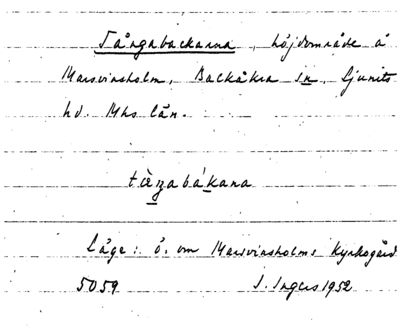 Tångabackarna, höjdområde å
Marsvinsholm, Backåkra sn, Ljunits
hd. Mhs. län.
Läge: ö. om Marsvinsholms kyrkogård
5059 I. Ingers 1952